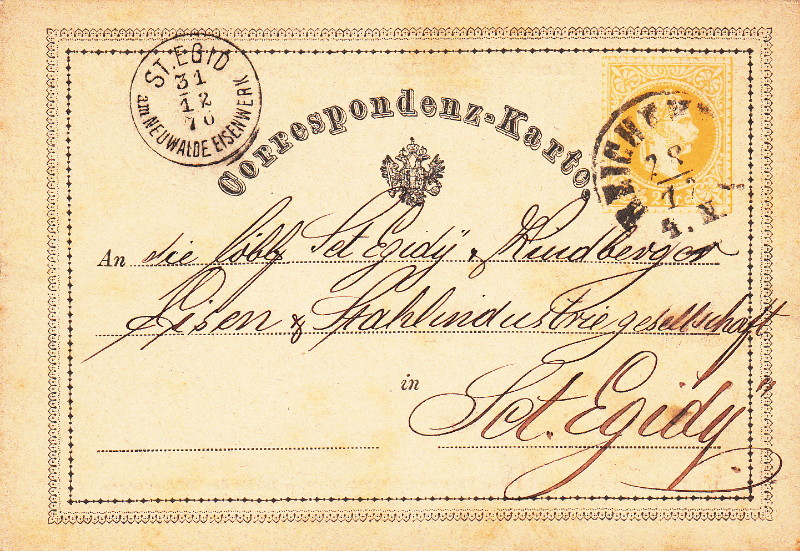 ST. EGID
31
12
70
am NEUWALDE EISENWERK
Correspondenz-Karte
28
An die löbl Sct Egidÿ & Kindberger
Eisen & Stahlindustriegesellschaft
in Sct. Egidÿ